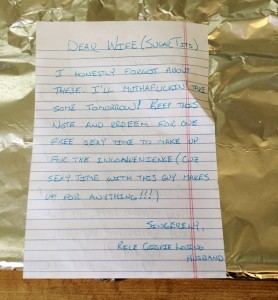 Dear Wife (Sugar Tits)
I honestly forgot about
these. I'll muthafuckin' take
some tomorrow! Keep this
note and redeem for one
free sexy time to make up
for the inconvenience (cuz
sexy time with this guy makes
up for anything!!!)
Sincerely,
Rice Cookie Loving
Husband